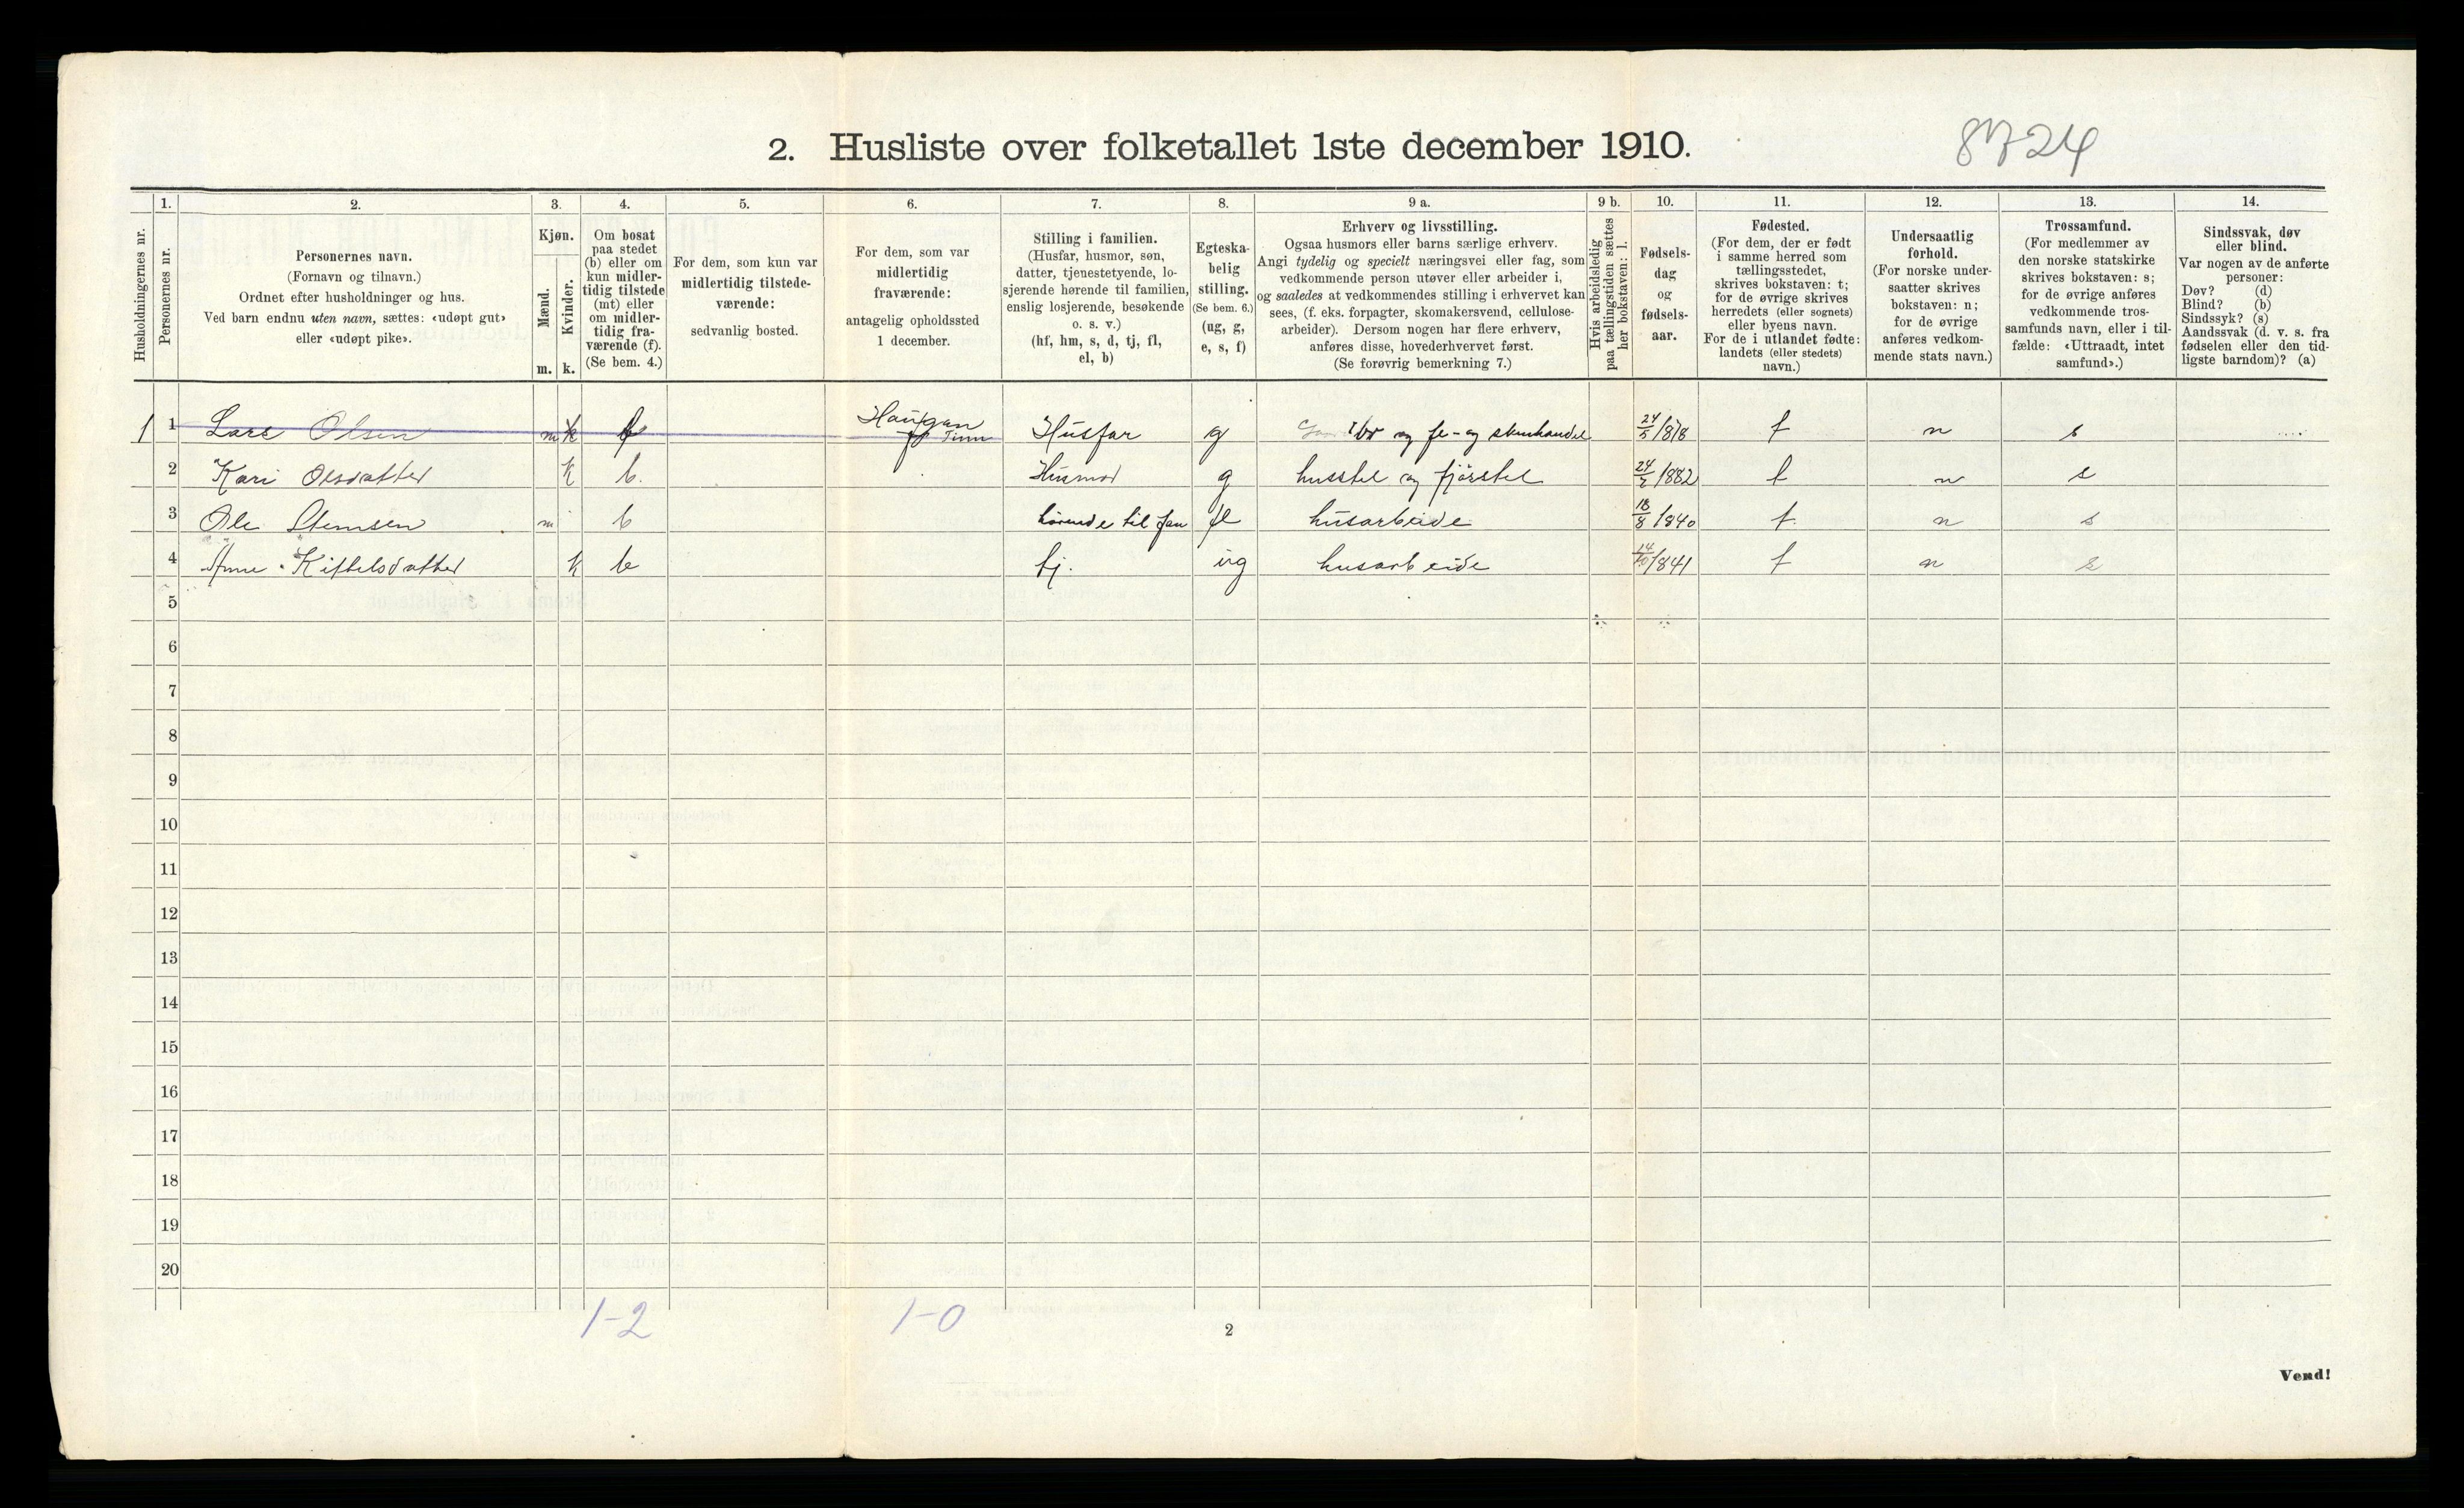 2. Husliste over folketallet 1ste december 1910.
8724
Husholdningernes nr.
1.
Personernes nr.
2.
Personernes navn.
(Fornavn og tilnavn.)
Ordnet efter husholdninger og hus.
Ved barn endnu uten navn, sættes: «udøpt gut»
eller «udøpt pike».
3.
Kjøn.
Mænd.
Kvinder.
m. k.
4.
Om bosat
paa stedet
(b) eller om
kun midler-
tidig tilstede
(mt) eller
om midler-
tidig fra-
værende (f).
(Se bem. 4.)
5.
For dem, som kun var
midlertidig tilstede-
værende:
sedvanlig bosted.
6.
For dem, som var
midlertidig
fraværende:
antagelig opholdssted
1 december.
7.
Stilling i familien.
(Husfar, husmor, søn,
datter, tjenestetyende, lo-
sjerende hørende til familien,
enslig losjerende, besøkende
o. s. v.)
(hf, hm, s, d, tj, fl,
el, b)
8.
Egteska-
belig
stilling.
(Se bem. 6.)
(ug, g,
e, s, f)
9 a.
Erhverv og livsstilling.
Ogsaa husmors eller barns særlige erhverv.
Angi tydelig og specielt næringsvei eller fag, som
vedkommende person utøver eller arbeider i,
og saaledes at vedkommendes stilling i erhvervet kan
sees, (f. eks. forpagter, skomakersvend, cellulose-
arbeider). Dersom nogen har flere erhverv,
anføres disse, hovederhvervet først.
(Se forøvrig bemerkning 7.)
9 b.
Hvis arbeidsledig
paa tællingstiden sættes
her bokstaven: l.
10.
Fødsels-
dag
og
fødsels-
aar.
11.
Fødested.
(For dem, der er født
i samme herred som
tællingsstedet,
skrives bokstaven: t;
for de øvrige skrives
herredets (eller sognets)
eller byens navn.
For de i utlandet fødte:
landets (eller stedets)
navn.)
12.
Undersaatlig
forhold.
(For norske under-
saatter skrives
bokstaven: n;
for de øvrige
anføres vedkom-
mende stats navn.)
13.
Trossamfund.
(For medlemmer av
den norske statskirke
skrives bokstaven: s;
for de øvrige anføres
vedkommende tros-
samfunds navn, eller i til-
fælde: «Uttraadt, intet
samfund».)
14.
Sindssvak, døv
eller blind.
Var nogen av de anførte
personer:
Døv? (d)
Blind? (b)
Sindssyk? (s)
Aandssvak (d. v. s. fra
fødselen eller den tid-
ligste barndom)? (a)
1 1 Lars Olsen m k Haugen Tinn Husfar g og fe- og skinhandel 24/5 t n s
2 Kari Olsdatter k b. Husmor g husstel og fjøsstel 1882 t n s
3 Ole m b hørende til fam husarbeide 18/8 1840 t. n s
4 Anne Kittelsdatter k b tj. ug husarbeide 14/10 1841 t n s
5
6
7
8
9
10
11
12
13
14
15
16
17
18
19
20
1-2 1-0
2
Vend!